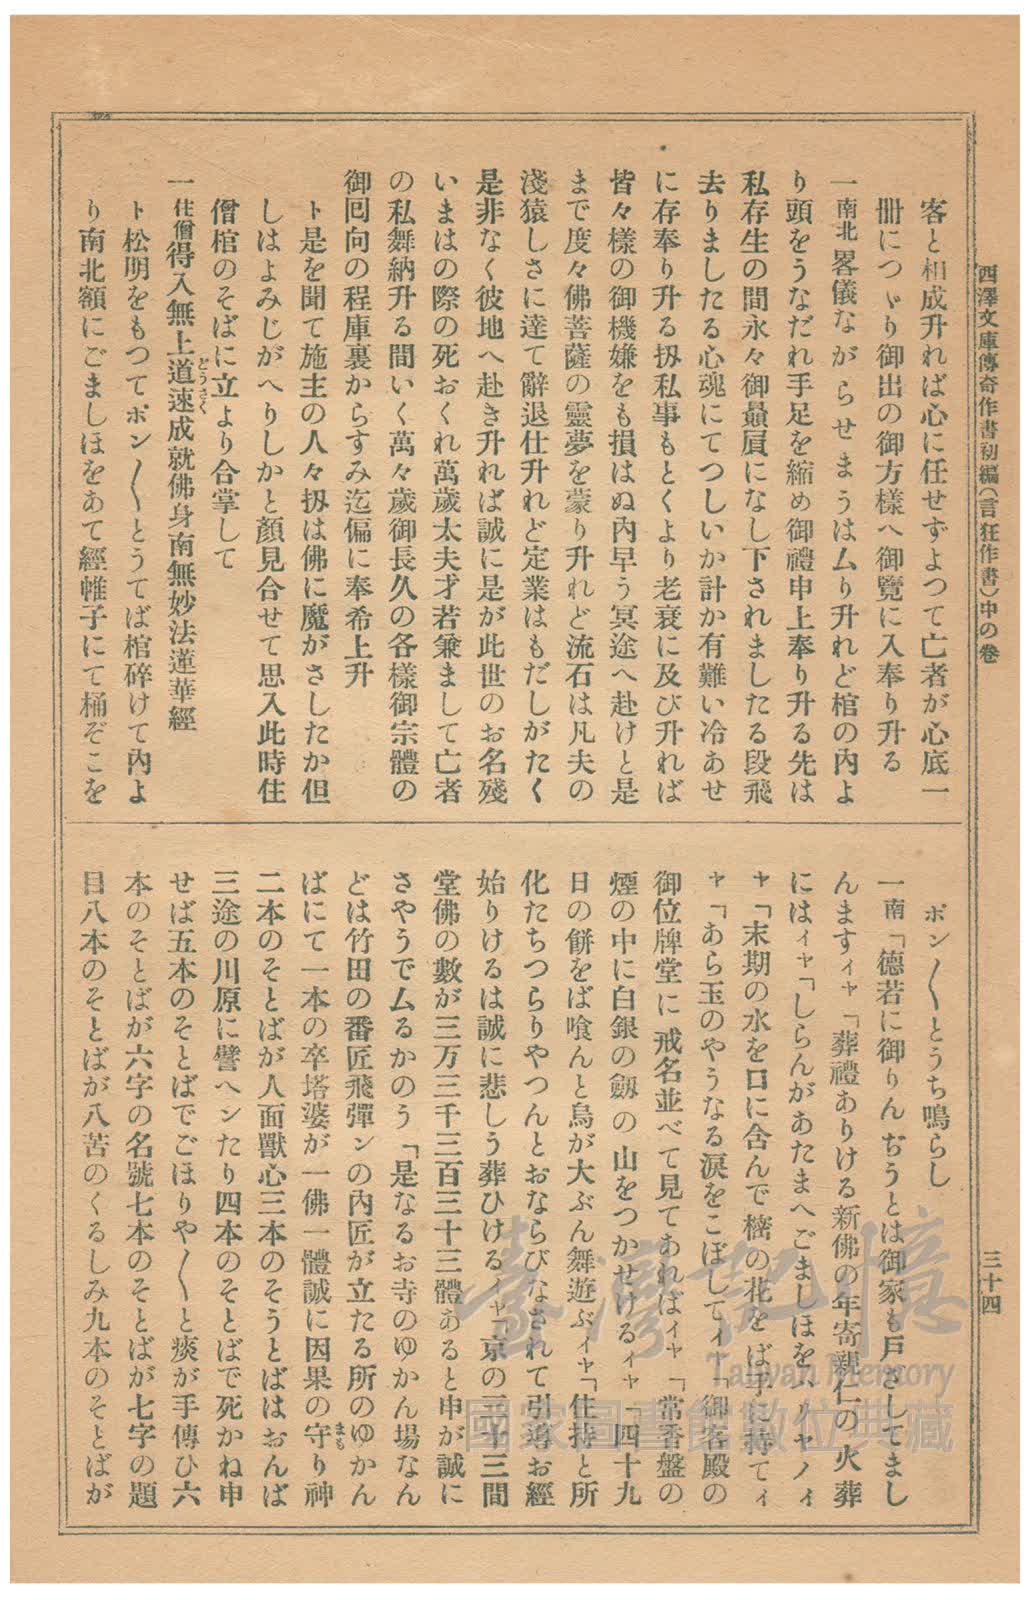 西澤文庫傳奇作書初編(言狂作書)中の卷
三十四
客と相成升れば心に任せずよつて亡者が心底一
冊につゞり御出の御方樣へ御覽に入奉り升る
一南北畧儀ながらせまうはムり升れど棺の內よ
り頭をうなだれ手足を縮め御禮申上奉り升る先は
私存生の間永々御贔屓になし下されましたる段飛
去りましたる心魂にてつしいか計か有難い冷あせ
に存奉り升る扨私事もとくより老衰に及び升れば
皆々樣の御機嫌をも損はぬ內早う冥途へ赴けと是
まで度々佛菩薩の靈夢を蒙り升れど流石は凡夫の
淺猿しさに達て辭退仕升れど定業はもだしがたく
是非なく彼地へ赴き升れば誠に是が此世のお名殘
いまはの際の死おくれ萬歲太夫才若兼まして亡者
の私舞納升る間いく萬々歲御長久の各樣御宗體の
御囘向の程庫裏からすみ迄偏に奉希上升
ト是を聞て施主の人々扨は佛に魔がさしたか但
しはよみじがへりしかと顏見合せて思入此時住
僧棺のそばに立より合掌して
一住僧得入無上道速成就佛身南無妙法蓮華經
どうさく
ト松明をもつてポン〱とうてば棺碎けて內よ
り南北額にごましほをあて經帷子にて桶ぞこを
ポン〱とうち鳴らし
一南「德若に御りんぢうとは御家も戶ざしてまし
んますィャ「葬禮ありける新佛の年寄親仁の火葬
にはィャ「しらんがあたまへごましほをふりヤノィ
ャ「末期の水を口に含んで樒の花をば手に持てィ
ャ「あら玉のやうなる淚をこぼしてィャ「御客殿の
御位牌堂に戒名並べて見てあればィャ「常香盤の
煙の中に白銀の劔の山をつかせけるィャ「四十九
日の餅をば喰んと烏が大ぶん舞遊ぶィャ「住持と所
化たちつらりやつんとおならびなされて引導お經
始りけるは誠に悲しう葬ひけるィャ「京の三十三間
堂佛の數が三万三千三百三十三體あると申が誠に
さやうでムるかのう「是なるお寺のゆかん場なん
どは竹田の番匠飛彈ンの內匠が立たる所のゆかん
ばにて一本の卒塔婆が一佛一體誠に因果の守り神
まも
二本のそとばが人面獸心三本のそうとばはおんば
三途の川原に譬へンたり四本のそとばで死かね申
せば五本のそとばでごほりや〱と痰が手傳ひ六
本のそとばが六字の名號七本のそとばが七字の題
目八本のそとばが八苦のくるしみ九本のそとばが
臺灣記憶
Taiwan Memory
國家圖書館數位典藏